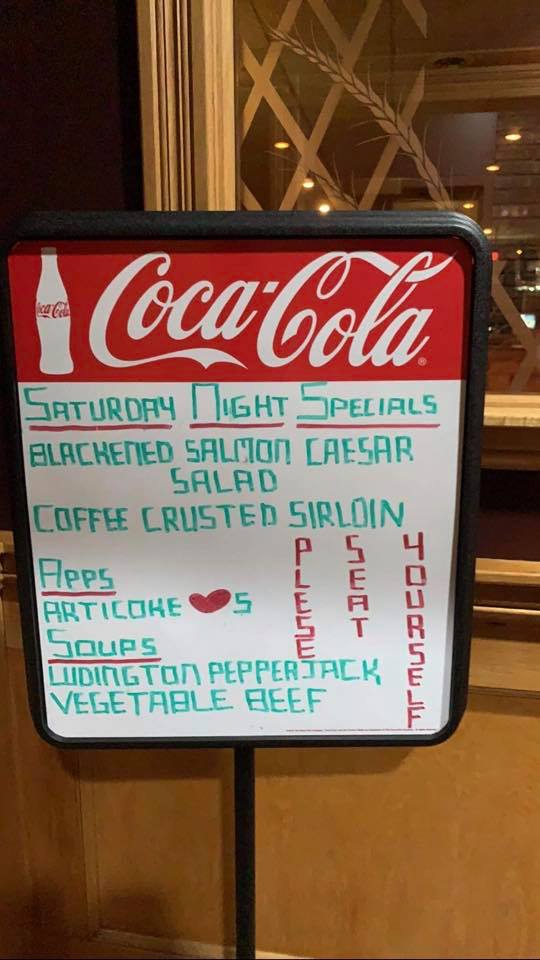 Coca-Cola
Coca-Cola
SATURDAY NIGHT SPECIALS
BLACKENED SALMON CAESAR
SALAD
COFFEE CRUSTED SIRLOIN
APPS
ARTICOKE ♥S
SOUPS
LUDINGTON PEPPERJACK
VEGETABLE BEEF
PLEESE
SEAT
YOURSELF